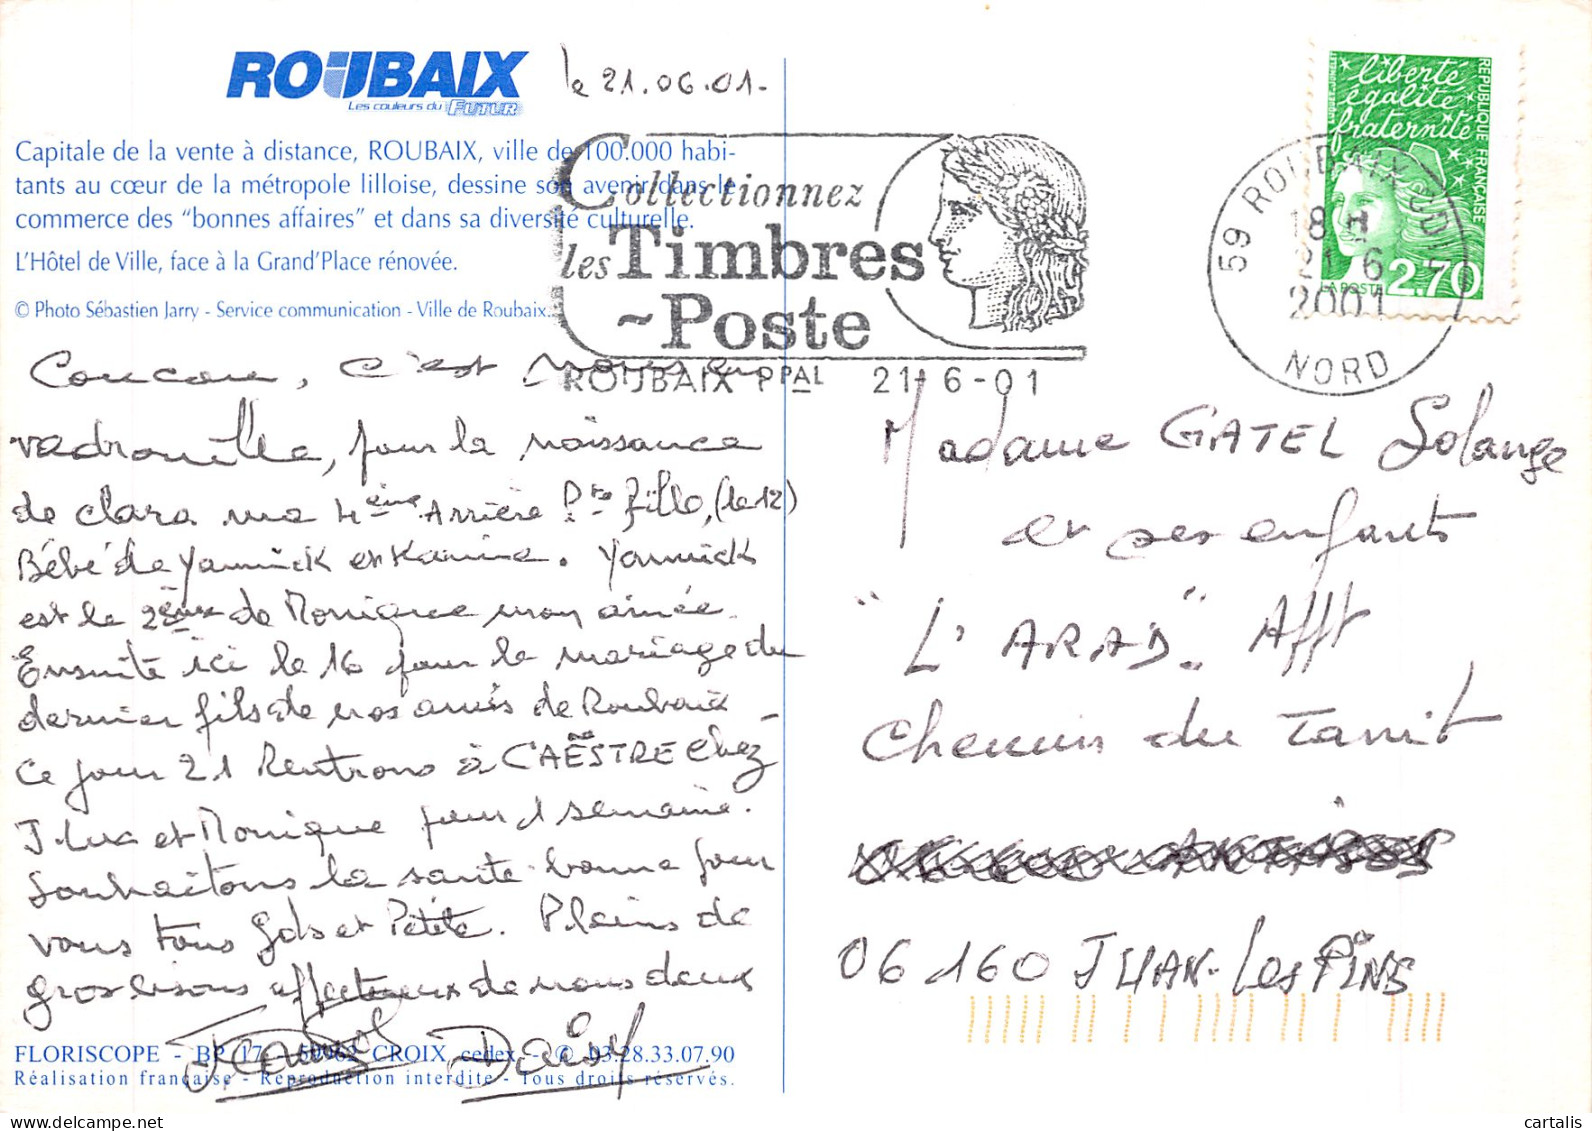 ROUBAIX
Les couleurs du FUTUR
le 21.06.01.
Capitale de la vente à distance, ROUBAIX, ville de 100.000 habi-
tants au cœur de la métropole lilloise, dessine son avenir dans le
commerce des "bonnes affaires" et dans sa diversité culturelle.
L'Hôtel de Ville, face à la Grand'Place rénovée.
© Photo Sébastien Jarry - Service communication - Ville de Roubaix.
Collectionnez
les Timbres
~Poste
ROUBAIX PPAL 21-6-01
liberté
égalité
fraternité
RÉPUBLIQUE FRANÇAISE
LA POSTE 2,70
59 ROUBAIX
18 H
21-6
2001
NORD
Coucou, c'est nous en
vadrouille, pour la naissance
de Clara ma 4ème Arrière Pte fille, (le 12)
Bébé de Yannick et Karine. Yannick
est le 2ème de Monique mon aînée.
Ensuite ici le 16 pour le mariage du
dernier fils de nos amis de Roubaix
ce jour 21 Rentrons à CAËSTRE chez
J.Luc et Monique pour 1 semaine.
Souhaitons la santé bonne pour
vous tous Gds et Petits. Pleins de
gros bisous affectueux de nous deux
Daisy
Madame GATEL Solange
et ses enfants
"L'ARAD" Afft
Chemin du Tanit
06160 JUAN-Les PINS
FLORISCOPE - BP 17 - 59962 CROIX cedex - ✆ 03.28.33.07.90
Réalisation française - Reproduction interdite - Tous droits réservés.
cartalis